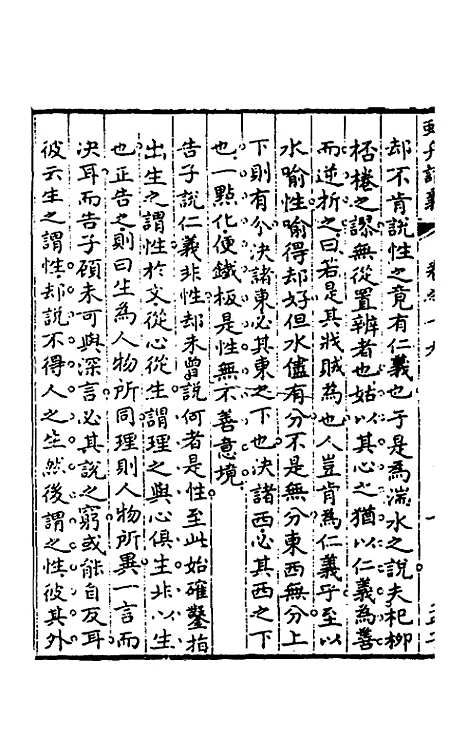 却不肯說性之竟有仁義也于是為湍水之說夫杞柳
桮棬之謬無從置辨者也姑以其心之猶以仁義為善
而逆折之曰若是其戕賊為也人豈肯為仁義乎至以
水喻性喻得却好但水儘有分不是無分東西無分上
下則有分決諸東必其東之下也決諸西必其西之下
也一點化便鐵板是性無不善意境
告子說仁義非性却未曾說何者是性至此始確鑿指
出生之謂性於文從心從生謂理之與心俱生非以生
也正告之則曰生為人物所同理則人物所異一言而
決耳而告子碩未可與深言必其說之窮或能自反耳
彼云生之謂性却說不得人之生然後謂之性彼其外